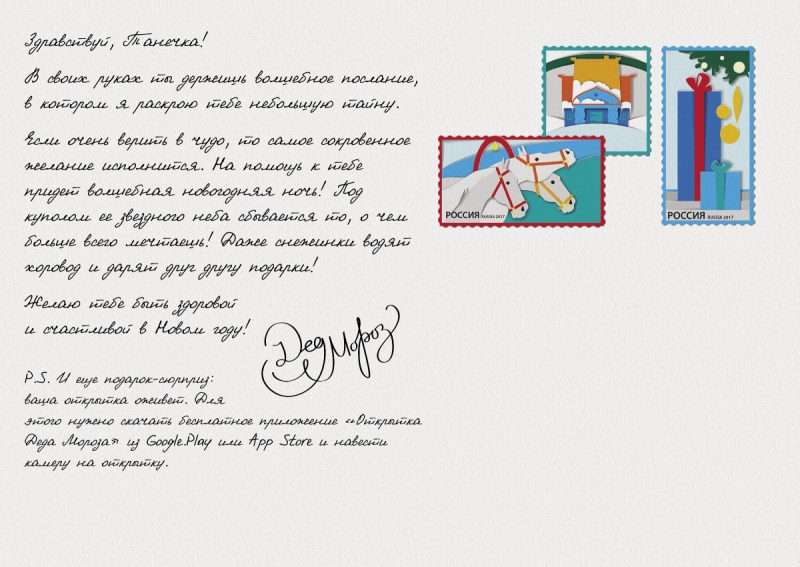 Здравствуй, Танечка!
В своих руках ты держишь волшебное послание,
в котором я раскрою тебе небольшую тайну.
Если очень верить в чудо, то самое сокровенное
желание исполнится. На помощь к тебе
придет волшебная новогодняя ночь! Под
куполом ее звездного неба сбывается то, о чем
больше всего мечтаешь! Даже снежинки водят
хоровод и дарят друг другу подарки!
Желаю тебе быть здоровой
и счастливой в Новом году!
Дед Мороз
P.S. И еще подарок-сюрприз:
ваша открытка оживет. Для
этого нужно скачать бесплатное приложение «Открытка
Деда Мороза» из Google.Play или App Store и навести
камеру на открытку.
РОССИЯ RUSSIA 2017
РОССИЯ RUSSIA 2017